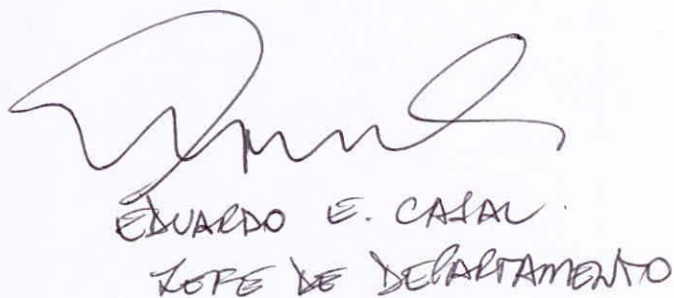 EDUARDO E. CASAL.
JEFE DE DEPARTAMENTO